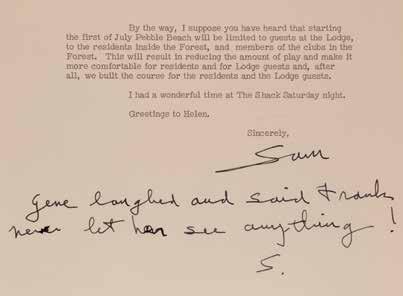 By the way, I suppose you have heard that starting
the first of July Pebble Beach will be limited to guests at the Lodge,
to the residents inside the Forest, and members of the clubs in the
Forest. This will result in reducing the amount of play and make it
more comfortable for residents and for Lodge guests and, after
all, we built the course for the residents and the Lodge guests.
I had a wonderful time at The Shack Saturday night.
Greetings to Helen.
Sincerely,
Sam
Gene laughed and said Frank
never let her see anything!
S.